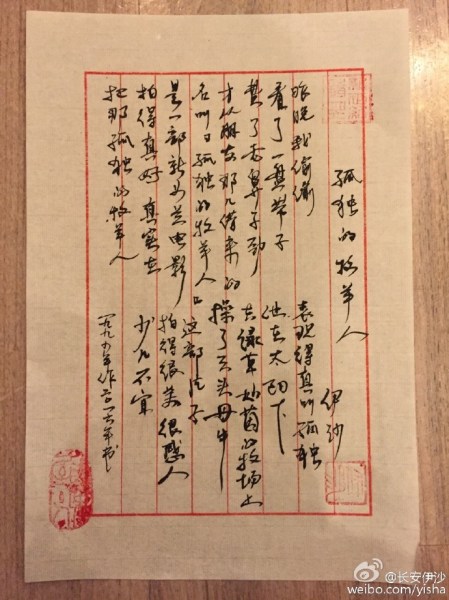 孤独的牧羊人
伊沙
昨晚我偷偷
看了一盘带子
费了老鼻子劲
才从朋友那儿借来的
名叫《孤独的牧羊人》
是一部新西兰电影
拍得真好 真实在
把那孤独的牧羊人
表现得真叫孤独
他在太阳下
在绿草如茵的牧场上
操了三头母牛
这部片子
拍得很美 很感人
少儿不宜
一九九五年作二〇一六年书
@长安伊沙
weibo.com/yisha